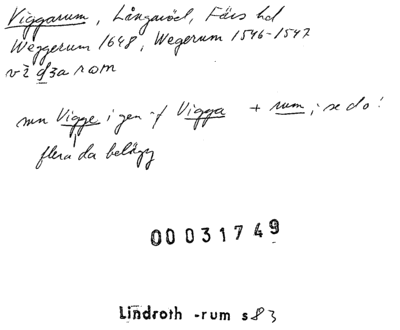 Viggarum, Långaröd, Färs hd
Weggerum 1648, Wegerum 1546-1547
vì gza rom
mn Vigge i gen. / Vigga + rum; se do!
flera da belägg
00031749
Lindroth -rum s 83